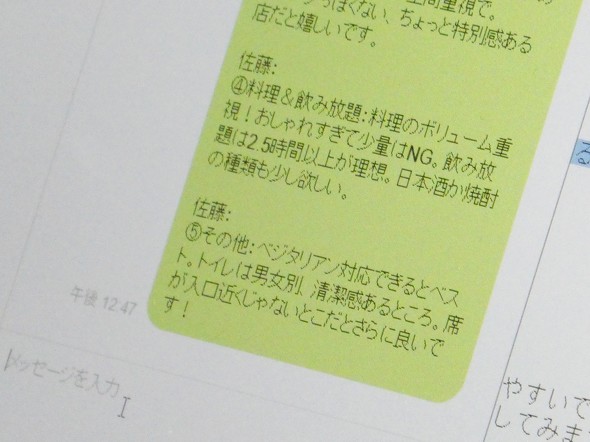 っぽくない、ちょっと特別感ある
店だと嬉しいです。
佐藤:
④料理＆飲み放題:料理のボリューム重
視！おしゃれすぎて少量はNG。飲み放
題は2.5時間以上が理想。日本酒か焼酎
の種類も少し欲しい。
佐藤:
⑤その他:ベジタリアン対応できるとベス
ト。トイレは男女別、清潔感あるところ。席
が入口近くじゃないとこだとさらに良いで
す！
午後 12:47
メッセージを入力
やすいで
してみま